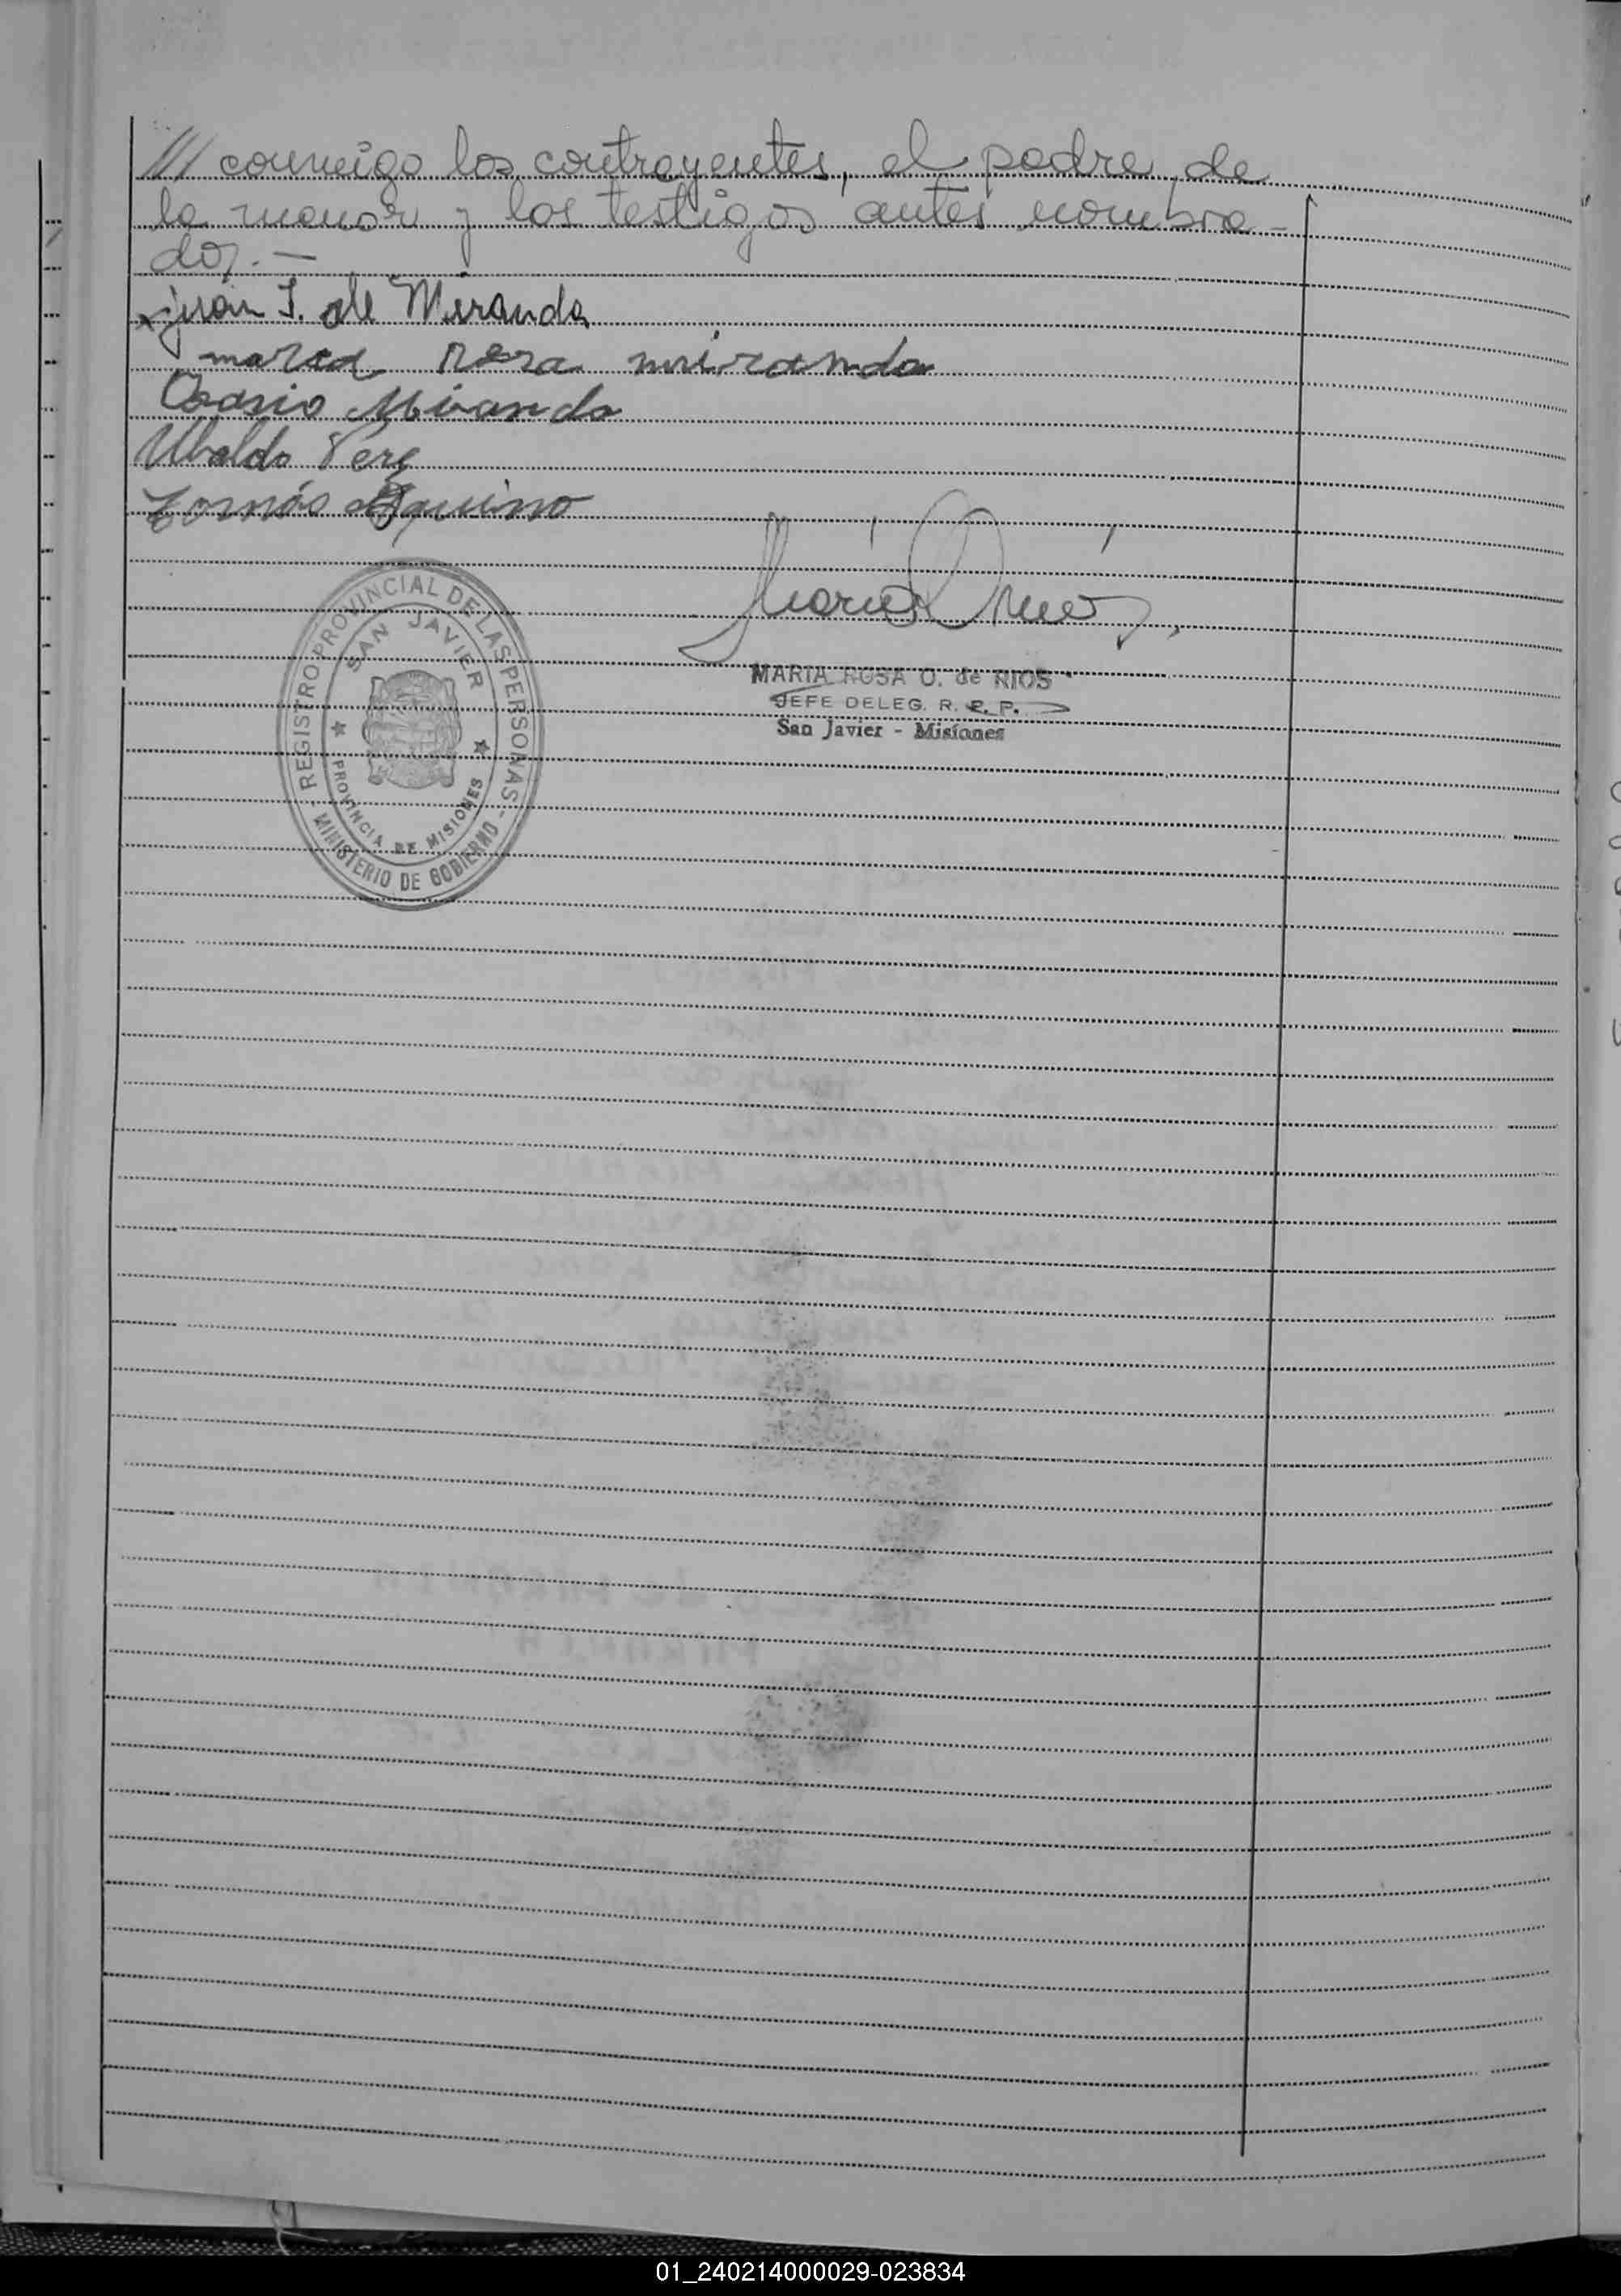 /// conmigo los contrayentes, el padre de
la menor y los testigos antes nombra-
dos.—
x juan I. de Miranda
maria rosa miranda
Miranda
Ubaldo Perez
Tomás Aquino
REGISTRO PROVINCIAL DE LAS PERSONAS
SAN JAVIER
PROVINCIA DE MISIONES
- MINISTERIO DE GOBIERNO -
MARIA ROSA O. de RIOS
JEFE DELEG. R. P. P.
San Javier - Misiones
01_240214000029-023834